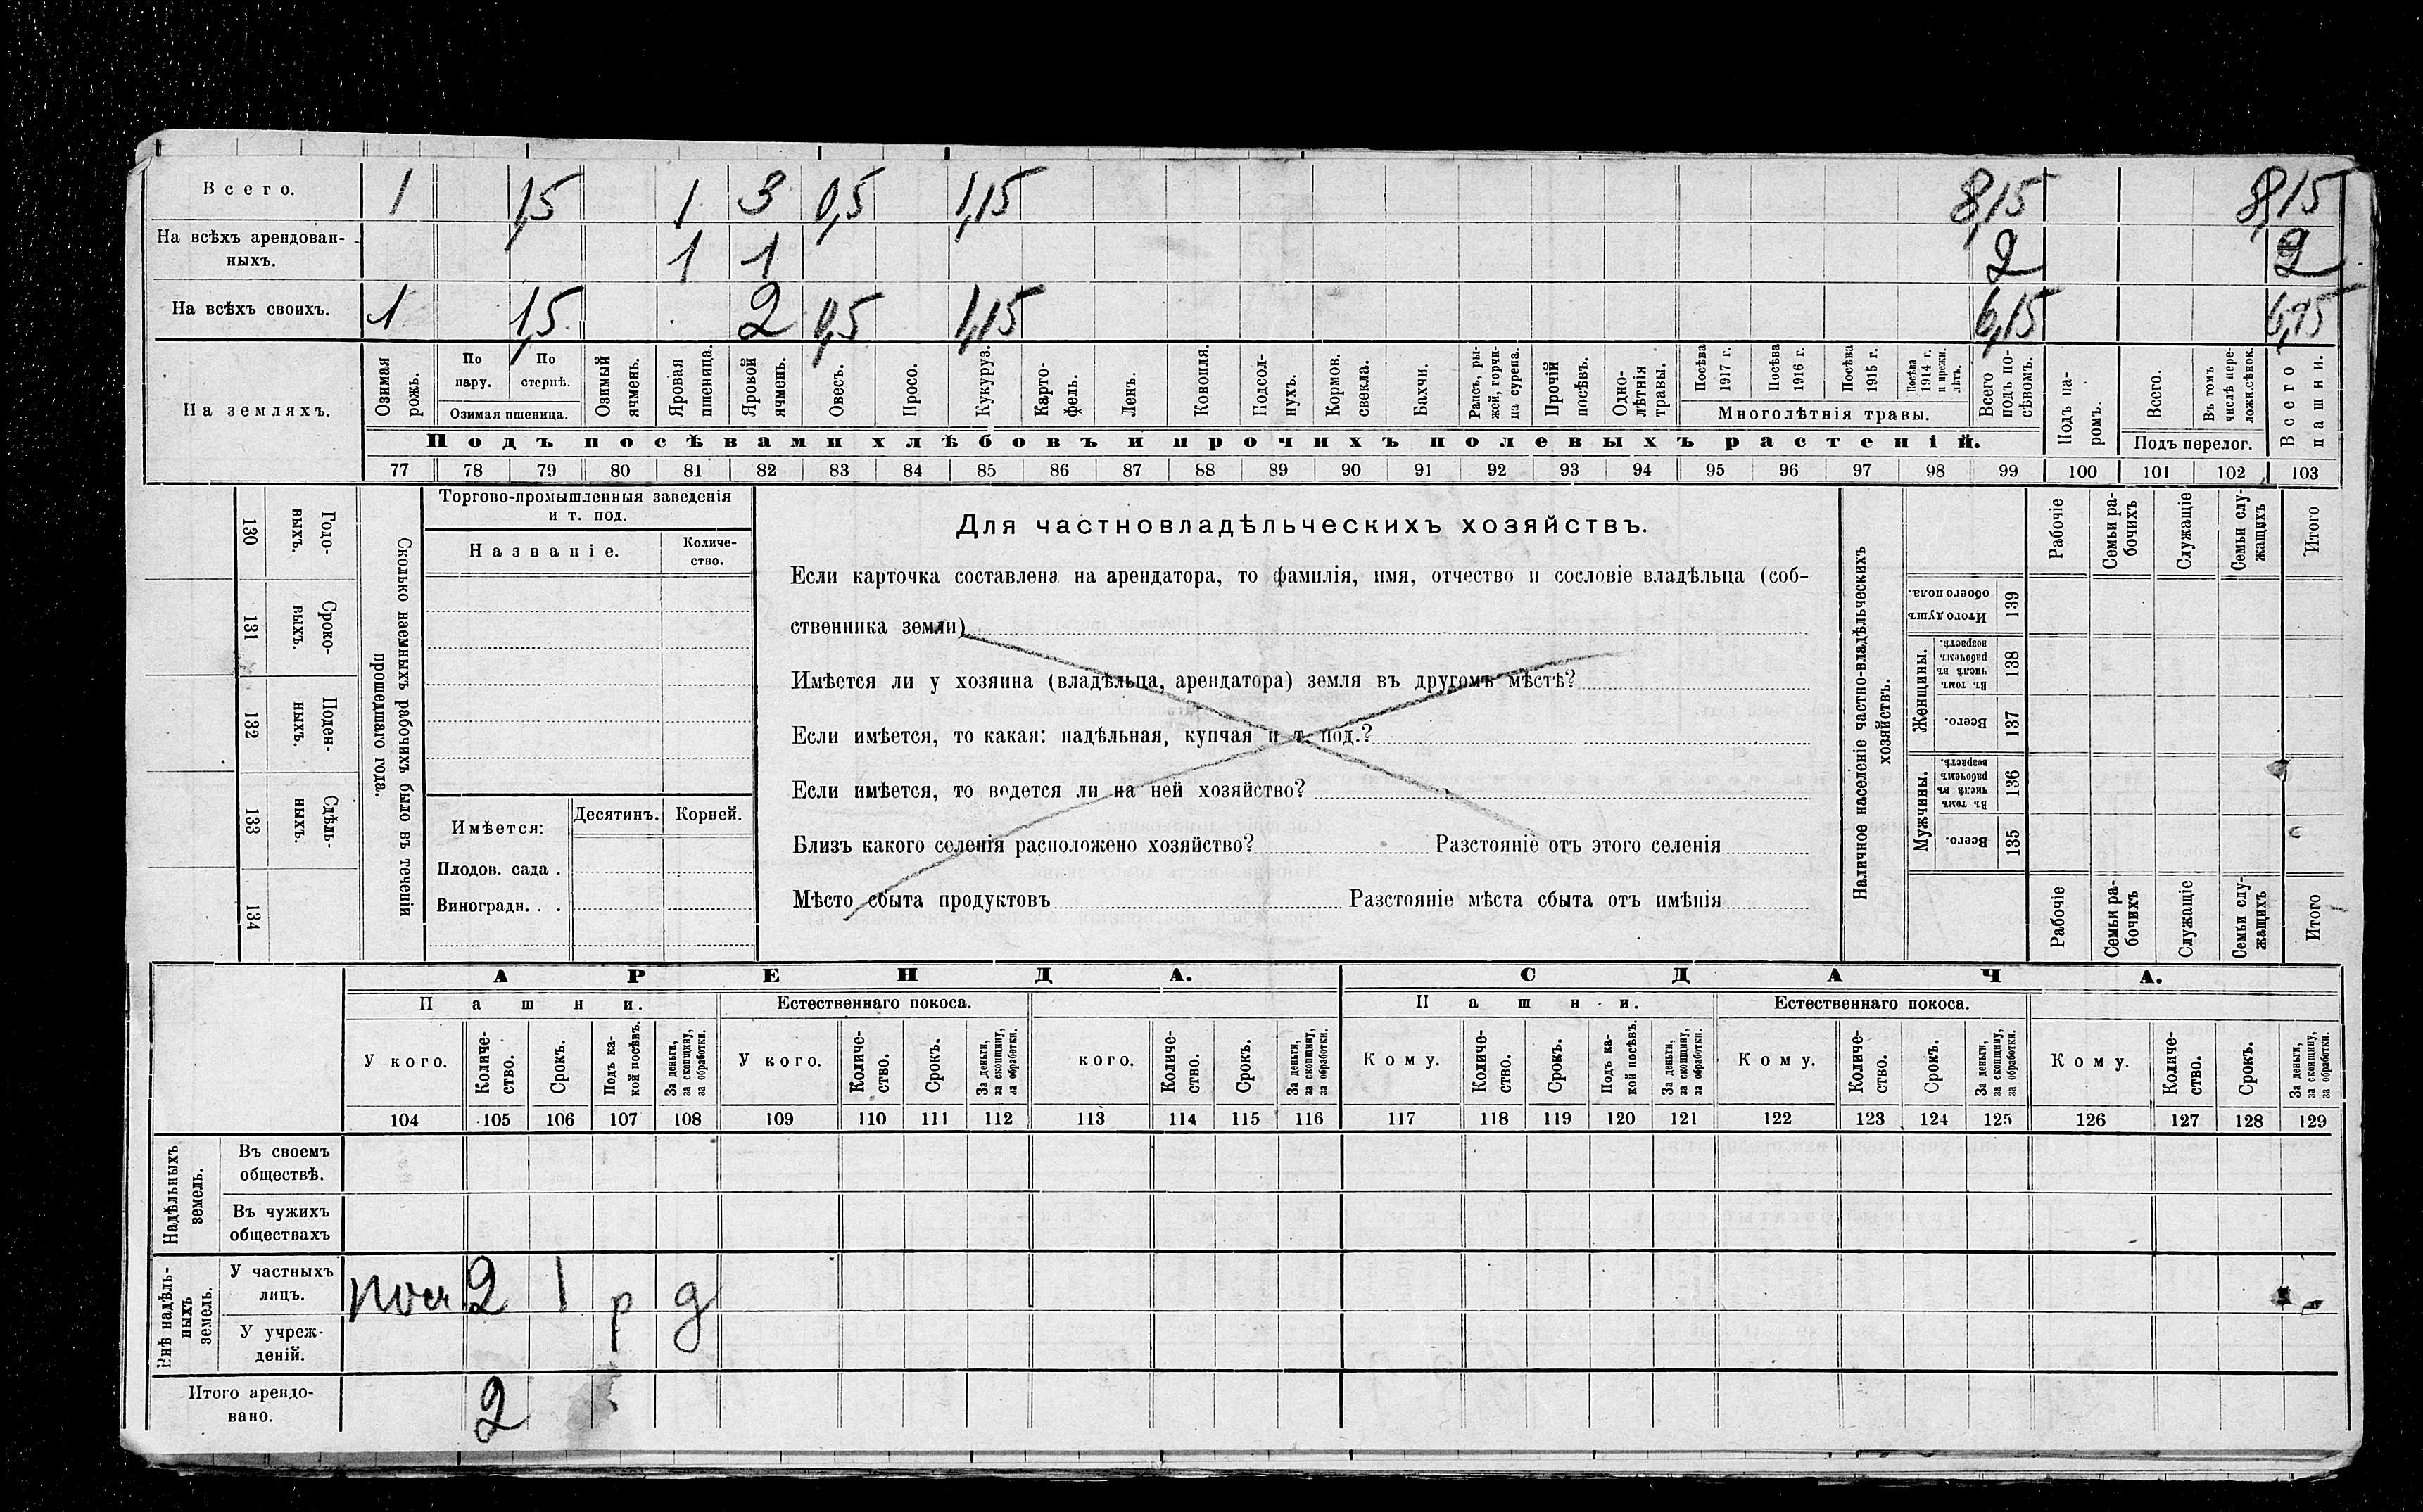 Всего. 1 1,5 1 3 0,5 1,15 8,15 8,15
На всѣхъ арендован-
ныхъ. 1 1 2 2
На всѣхъ своихъ. 1 1,5 2 0,5 1,15 6,15 6,15
На земляхъ.
Озимая рожь.
По пару.
По стернѣ.
Озимая пшеница.
Озимый ячмень.
Яровая пшеница.
Яровой ячмень.
Овесъ.
Просо.
Кукуруз.
Карто-
фель.
Ленъ.
Конопля.
Подсол-
нухъ.
Кормов. свекла.
Бахчи.
Рапсъ, ры-
жей, горчи-
ца сурепа.
Прочій посѣвъ.
Одно-
лѣтнія травы.
Посѣва 1917 г.
Посѣва 1916 г.
Посѣва 1915 г.
Посѣва 1914 г. и прежн. лѣтъ.
Многолѣтнія травы.
Всего подъ по-
сѣвомъ.
Подъ па-
ромъ.
Всего.
Въ томъ числѣ пере-
ложн.сѣнок.
Подъ перелог.
Всего пашни.
Подъ посѣвами хлѣбовъ и прочихъ полевыхъ растеній.
77 78 79 80 81 82 83 84 85 86 87 88 89 90 91 92 93 94 95 96 97 98 99 100 101 102 103
130 Годо-
выхъ.
131 Сроко-
выхъ.
132 Поден-
ныхъ.
133 Сдѣль-
ныхъ.
134
Сколько наемныхъ рабочихъ было въ теченіи
прошедшаго года.
Торгово-промышленныя заведенія
и т. под.
Названіе.
Количе-
ство.
Имѣется:
Десятинъ. Корней.
Плодов. сада .
Виноградн. . .
Для частновладѣльческихъ хозяйствъ.
Если карточка составлена на арендатора, то фамилія, имя, отчество и сословіе владѣльца (соб-
ственника земли)
Имѣется ли у хозяина (владѣльца, арендатора) земля въ другомъ мѣстѣ?
Если имѣется, то какая: надѣльная, купчая и т. под.?
Если имѣется, то ведется ли на ней хозяйство?
Близъ какого селенія расположено хозяйство? Разстояніе отъ этого селенія
Мѣсто сбыта продуктовъ Разстояніе мѣста сбыта отъ имѣнія
Наличное населеніе частно-владѣльческихъ
хозяйствъ.
Рабочіе
Семьи ра-
бочихъ
Служащіе
Семьи слу-
жащихъ
Итого
Итого душъ обоего пола. 139
Женщины.
Въ томъ числѣ въ рабочемъ возрастѣ. 138
Всего. 137
Мужчины.
Въ томъ числѣ въ рабочемъ возрастѣ. 136
Всего. 135
Рабочіе
Семьи ра-
бочихъ
Служащіе
Семьи слу-
жащихъ
Итого
АРЕНДА. СДАЧА.
Пашни. Естественнаго покоса. Пашни. Естественнаго покоса.
У кого.
Количе-
ство.
Срокъ.
Подъ ка-
кой посѣвъ.
За деньги, за скопщину, за обработки.
У кого.
Количе-
ство.
Срокъ.
За деньги, за скопщину, за обработки.
кого.
Количе-
ство.
Срокъ.
За деньги, за скопщину, за обработки.
Кому.
Количе-
ство.
Срокъ.
Подъ ка-
кой посѣвъ.
За деньги, за скопщину, за обработки.
Кому.
Количе-
ство.
Срокъ.
За деньги, за скопщину, за обработки.
Кому.
Количе-
ство.
Срокъ.
За деньги, за скопщину, за обработки.
104 105 106 107 108 109 110 111 112 113 114 115 116 117 118 119 120 121 122 123 124 125 126 127 128 129
Надѣльныхъ
земель.
Въ своемъ
обществѣ.
Въ чужихъ
обществахъ
Внѣ надѣль-
ныхъ
земель.
У частныхъ
лицъ. 2 1 р д
У учреж-
деній.
Итого арендо-
вано. 2